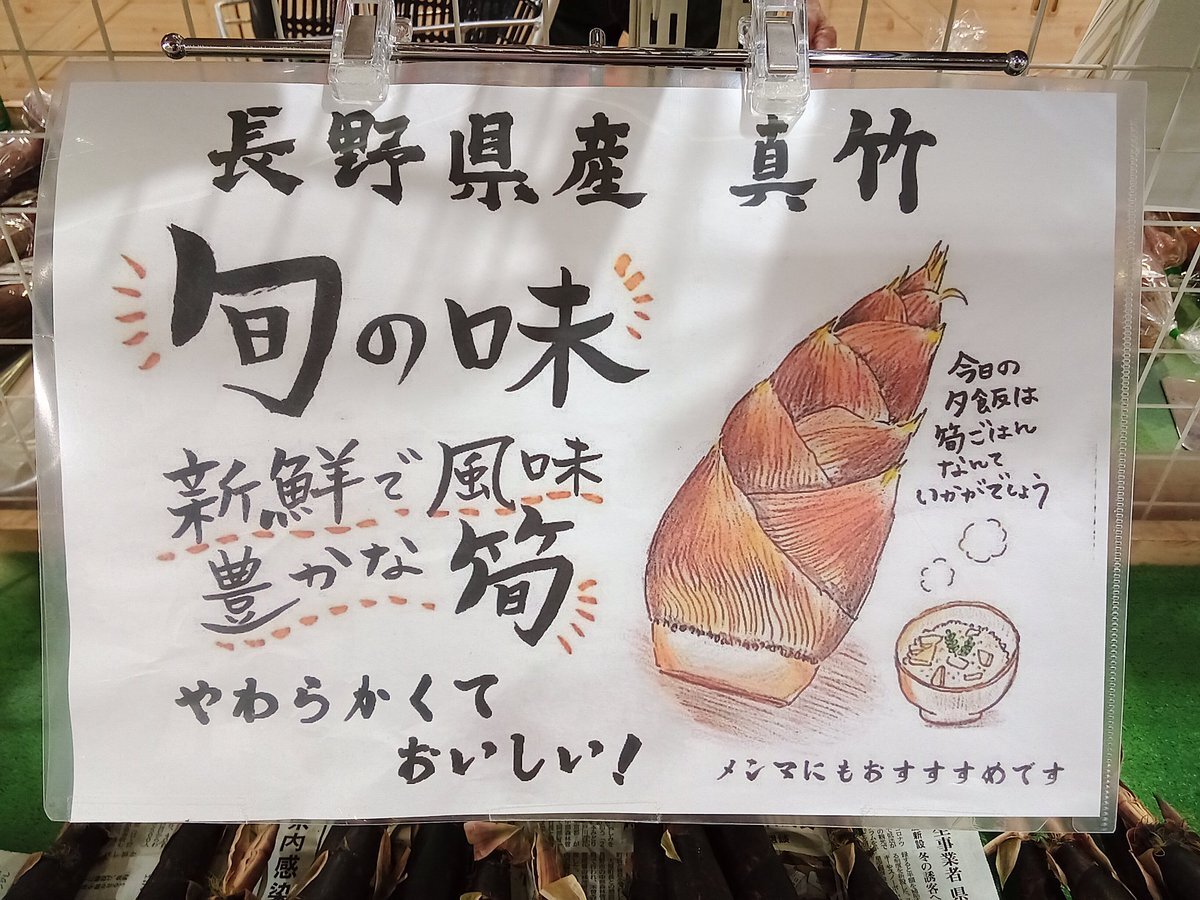 長野県産 真竹
旬の味
新鮮で風味
豊かな筍
やわらかくて
おいしい！
今日の
夕飯は
筍ごはん
なんて
いかがでしょう
メンマにもおすすすめです
内感染
生事業者 県
冬の誘客へ